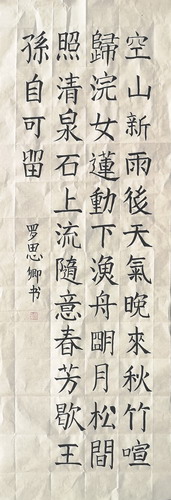 空山新雨後天氣晚來秋竹喧
歸浣女蓮動下漁舟朙月松間
照清泉石上流隨意春芳歇王
孫自可留
罗思卿书